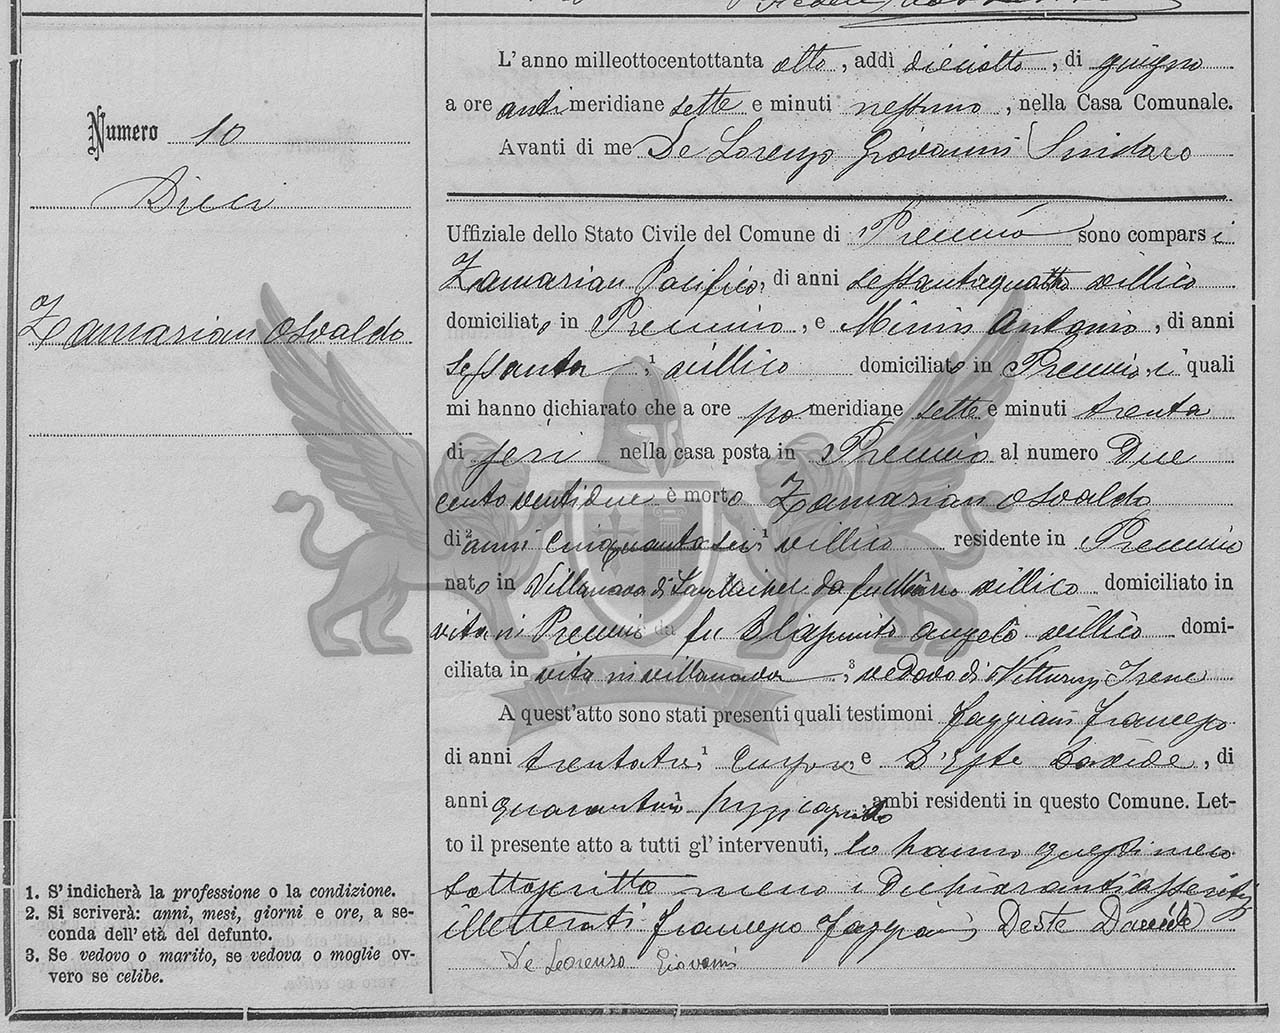 Numero 10
Dieci
Zamarian Osvaldo
L'anno milleottocentottanta otto, addì dieciotto, di giugno
a ore anti meridiane sette e minuti nessuno, nella Casa Comunale.
Avanti di me De Lorenzo Giovanni Sindaco
Uffiziale dello Stato Civile del Comune di Premio sono comparsi
Zamarian Pacifico, di anni sessantaquattro villico
domiciliato in , e Minin Antonio, di anni
sessanta ¹ villico domiciliato in , i quali
mi hanno dichiarato che a ore po meridiane sette e minuti trenta
di jeri nella casa posta in al numero Due
cento ventidue è morto Zamarian Osvaldo
di ² anni Cinquantasei ¹ villico residente in
nato in Villanova di da fu ¹ villico domiciliato in
vita in da fu Angelo villico domi-
ciliata in vita in Villanova ³ vedovo di Irene
A quest'atto sono stati presenti quali testimoni Faggiani Francesco
di anni trentatre ¹ e D'Este Davide, di
anni ¹ , ambi residenti in questo Comune. Let-
to il presente atto a tutti gl'intervenuti, lo hanno questi meco
sottoscritto meno i Dichiaranti
illetterati Francesco Faggiani Deste Davide
De Lorenzo Giovanni
1. S'indicherà la professione o la condizione.
2. Si scriverà: anni, mesi, giorni e ore, a se-
conda dell'età del defunto.
3. Se vedovo o marito, se vedova o moglie ov-
vero se celibe.